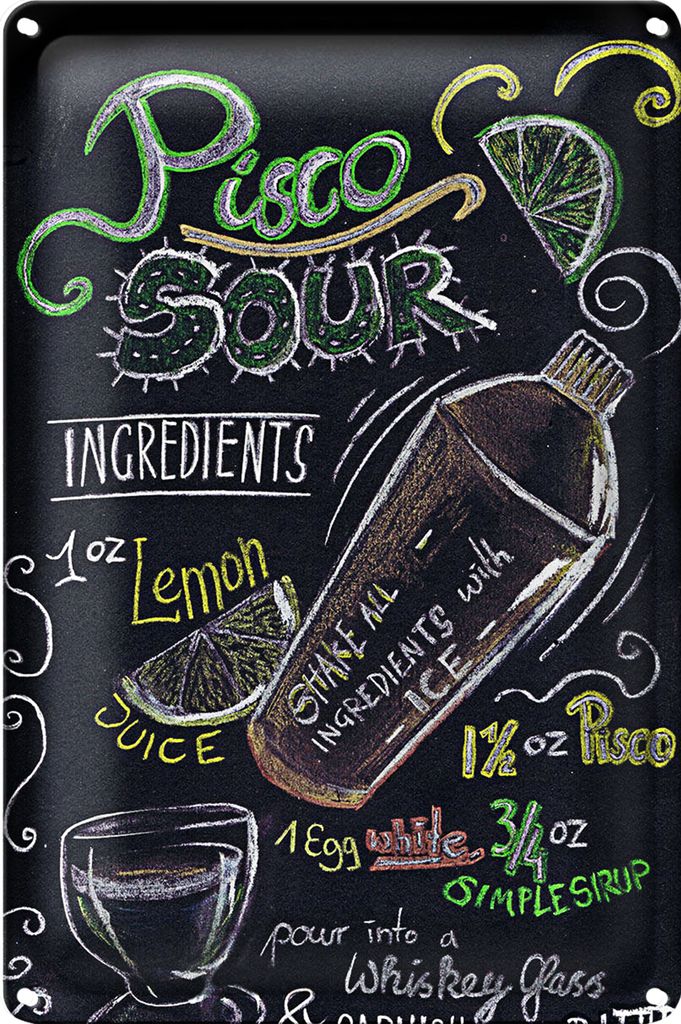 Pisco
SOUR
INGREDIENTS
1 oz Lemon
JUICE
SHAKE ALL
INGREDIENTS with
ICE
1 1/2 oz Pisco
1 Egg white
3/4 oz
SIMPLE SIRUP
pour into a
Whiskey Glass
&